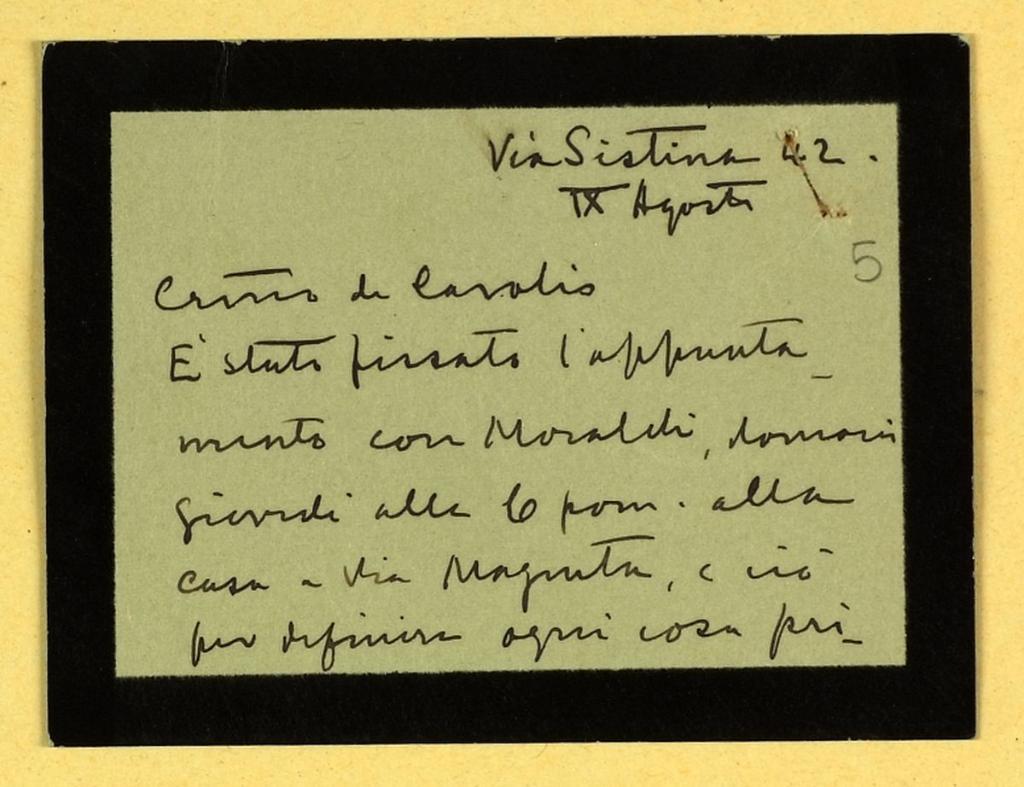 Via Sistina 42.
IX Agosto
5
Caro de Carolis
E' stato fissato l'appunta_
mento con Moraldi, domani
giovedi alle 6 pom. alla
casa a Via Magutta, e ciò
per definire ogni cosa pri_